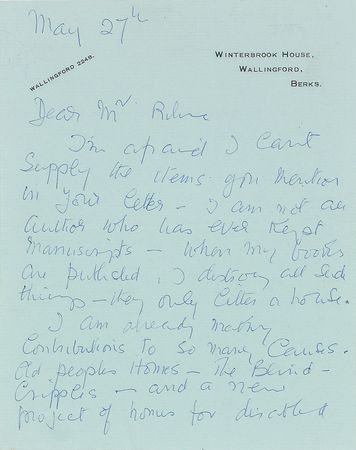 May 27th
WALLINGFORD 2248.
WINTERBROOK HOUSE,
WALLINGFORD,
BERKS.
Dear Mr
I'm afraid I can't
supply the items you mention
in your letter - I am not an
author who has ever kept
manuscripts - when my books
are published, I destroy all such
things - they only litter a house.
I am already making
contributions to so many Causes.
Old peoples Homes - The Blind -
Cripples - and a new
project of homes for disabled